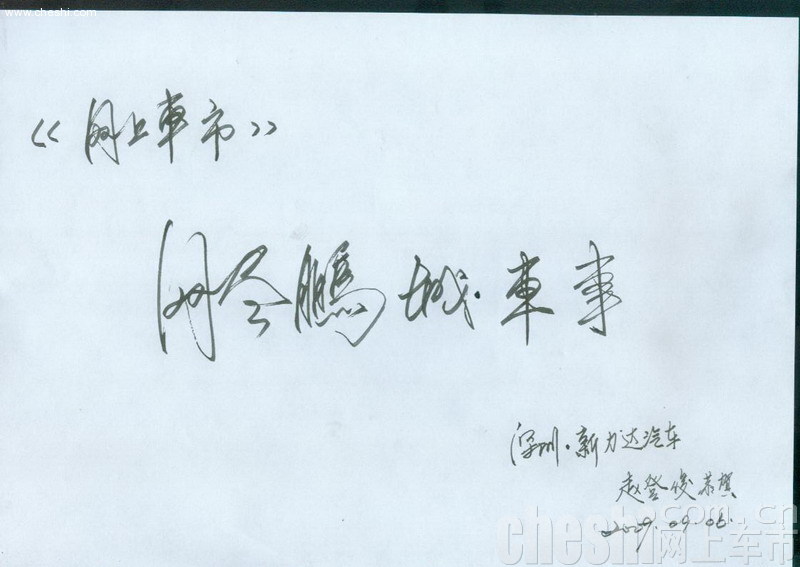 www.cheshi.com
《网上車市》
网尽鵬城車事
深圳·新力达汽车
赵登俊恭贺
2009.09.08.
cheshi.com.cn
网上车市